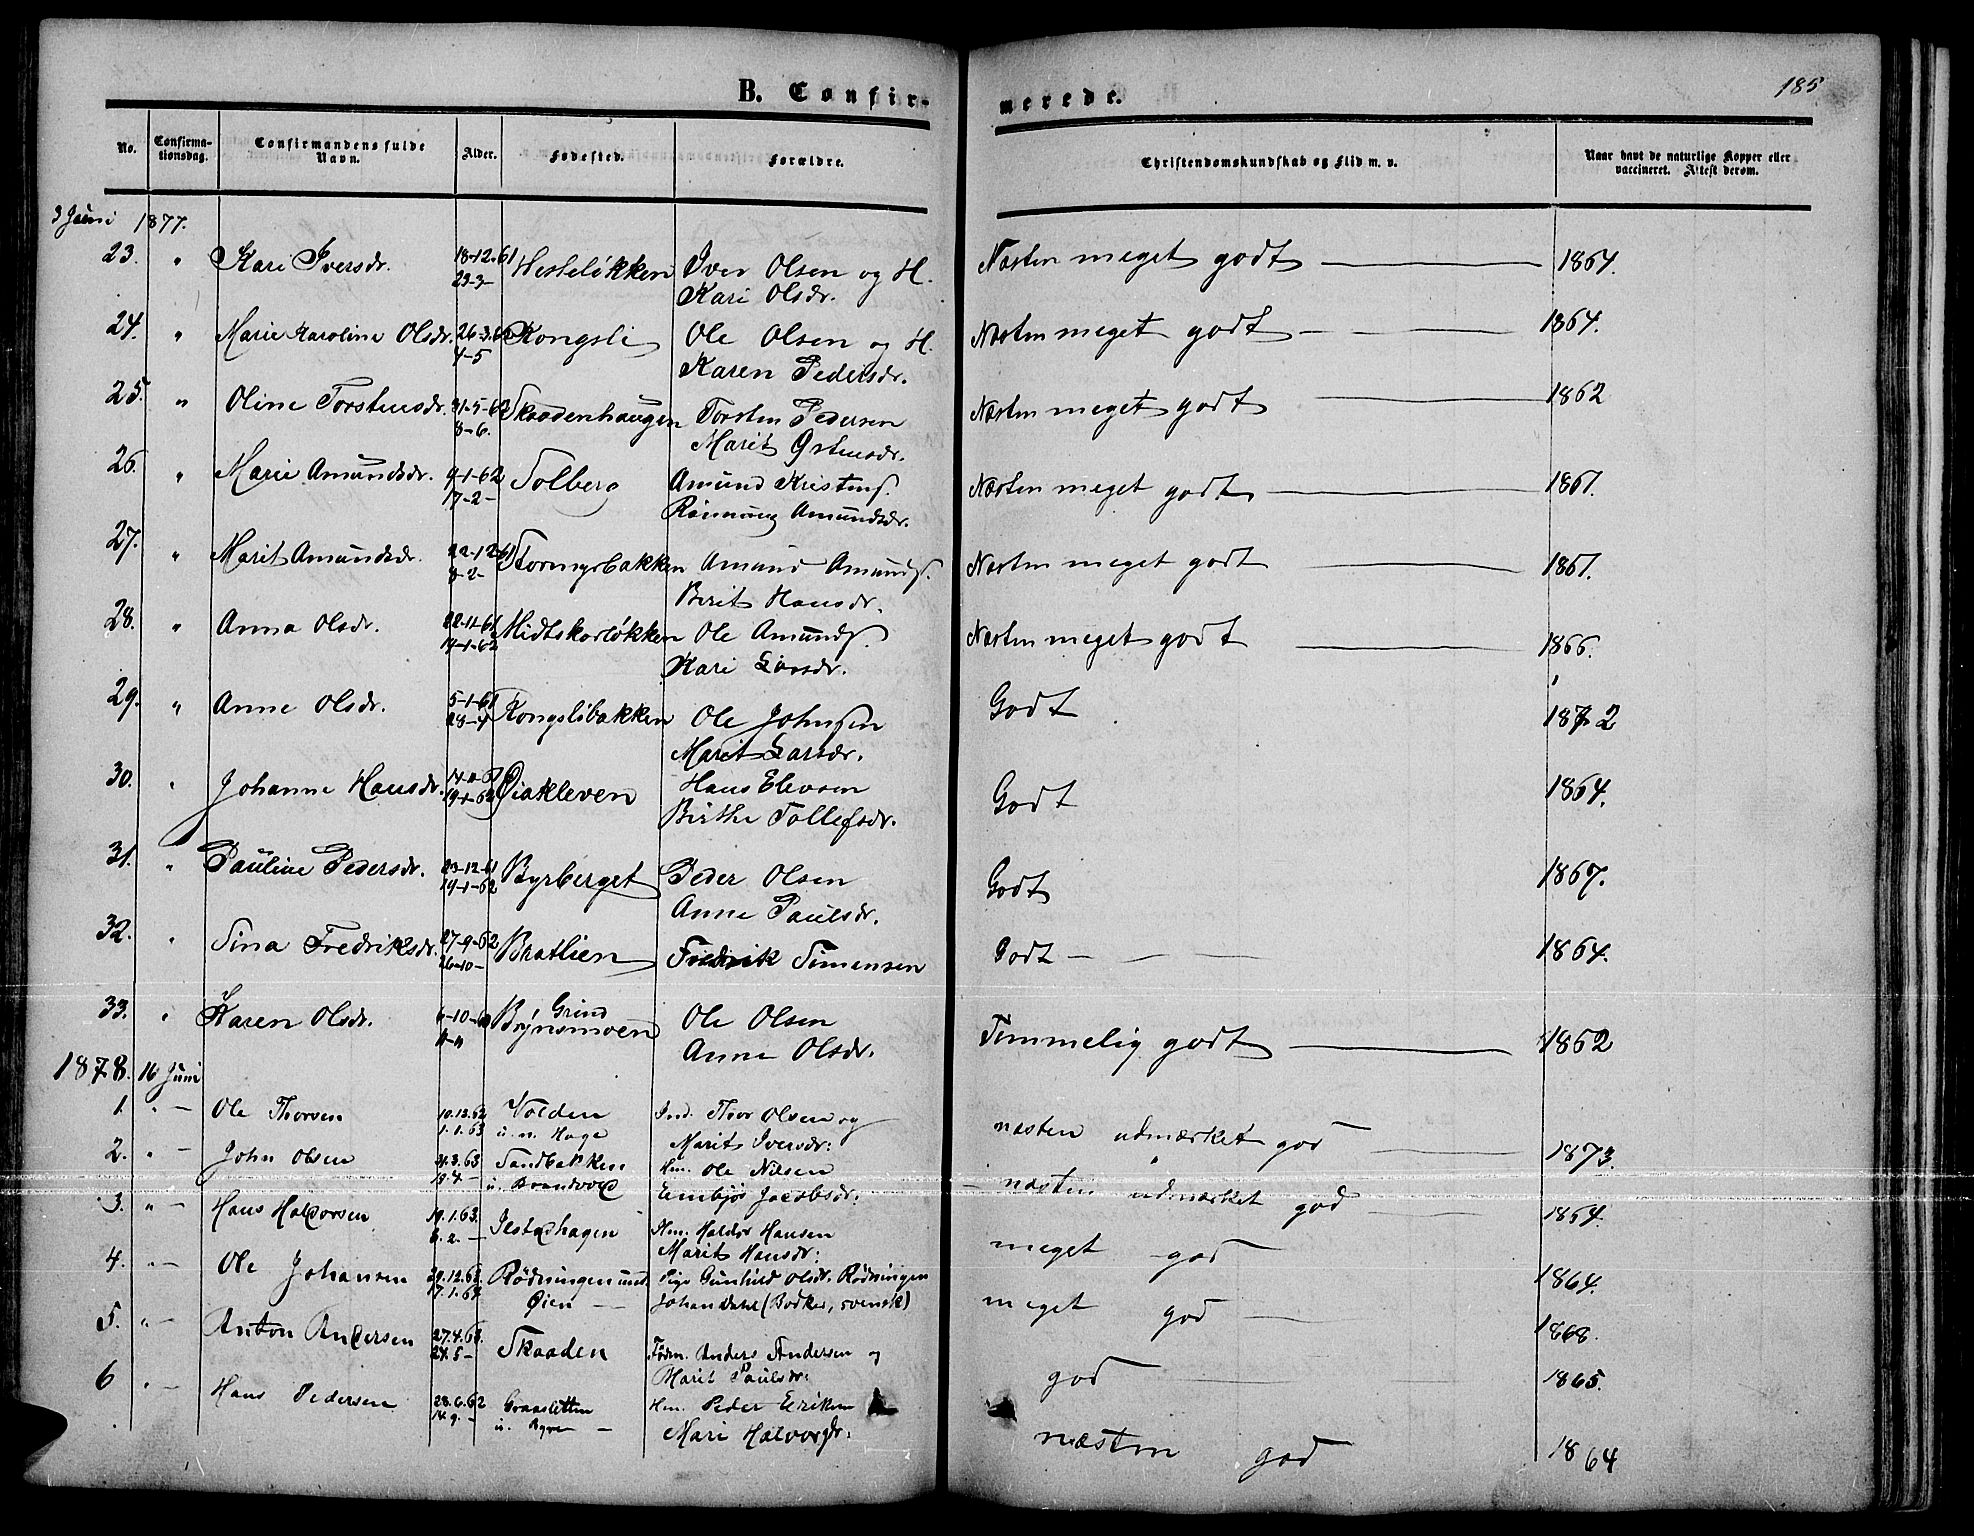 B. Confirmerede.
185
No. Confirmationsdag. Confirmandens fulde Navn. Alder. Fødested. Forældre. Christendomskundskab og Flid m. v. Naar havt de naturlige Kopper eller vaccineret. Attest derom.
3 Juni 1877.
23. " Kari Iversdr. 18-12-61 Hesteløkken Iver Olsen og H. Næsten meget godt 1864.
23-3- Kari Olsdr.
24. " Marie Karoline Olsdr. 26-3-62 Kongsli Ole Olsen og H. Næsten meget godt 1864.
4-5 Karen Pedersdr.
25. " Oline Torstensdr. 31-5-62 Skaadenhaugen Torsten Pedersen Næsten meget godt 1862
8-6. Marit Østensdr.
26. " Marie Amundsdr. 9-1-62 Solberg Amund Kristens. Næsten meget godt 1867.
17-2- Rønnaug Amundsdr.
27. " Marit Amundsdr. 22-12-61 Stormyrbakken Amund Amunds. Næsten meget godt 1867.
8-2- Berit Hansdr.
28. " Anna Olsdr. 22-11-61 Midtskorløkken Ole Amunds. Næsten meget godt 1866.
14-1-62 Kari Larsdr.
29. " Anne Olsdr. 5-1-61 Kongslibakken Ole Johnsen Godt 1872
28-4 Marit Larsdr.
30. " Johanne Hansdr. Øiakleven Hans Elevsen Godt 1864.
19-1-62 Birthe Tollefsdr.
31. " Pauline Pedersdr. 23-12-61 Byrberget Peder Olsen Godt 1867.
19-1-62 Anne Paulsdr.
32. " Sina Fredriksdr. 27-9-62 Bratlien Fredrik Simensen Godt 1864.
26-10-
33. " Karen Olsdr. Grind Brynsmoen Ole Olsen Temmelig godt 1862
Anne Olsdr.
1878. 16 Juni
1. " - Ole Thorsen 10.13.62 Volden Ind. Thor Olsen og næsten udmærket god 1873.
1.1.63 u. n. Hage Marit Iversdr:
2. " - John Olsen 31.3.63 Sandbakken Hm. Ole Nilsen næsten udmærket god 1864.
19.4. - u. Brandvold Embjør Jacobsdr:
3. " - Hans Halvorsen 19.1.63. Ilstadhagen Hm. Haldor Hansen meget god 1864.
8.2. - Marit Hansdr:
4. " - Ole Johansen 29.12.62. Rødningen und. Pige Gunhild Olsdr. Rødningen meget god 1868.
17.1.63 Øien - Johan Dahl (Bødker, svensk)
5. " - Anton Andersen 27.4.63. Skaaden Føderm. Anders Andersen og god 1865.
24.5 - Marit Paulsdr:
6 " - Hans Pedersen 28.6.62 Graasletten Hm. Peder Eriksen næsten god 1864
14.9. - u. Byre - Mari Halvorsdr: